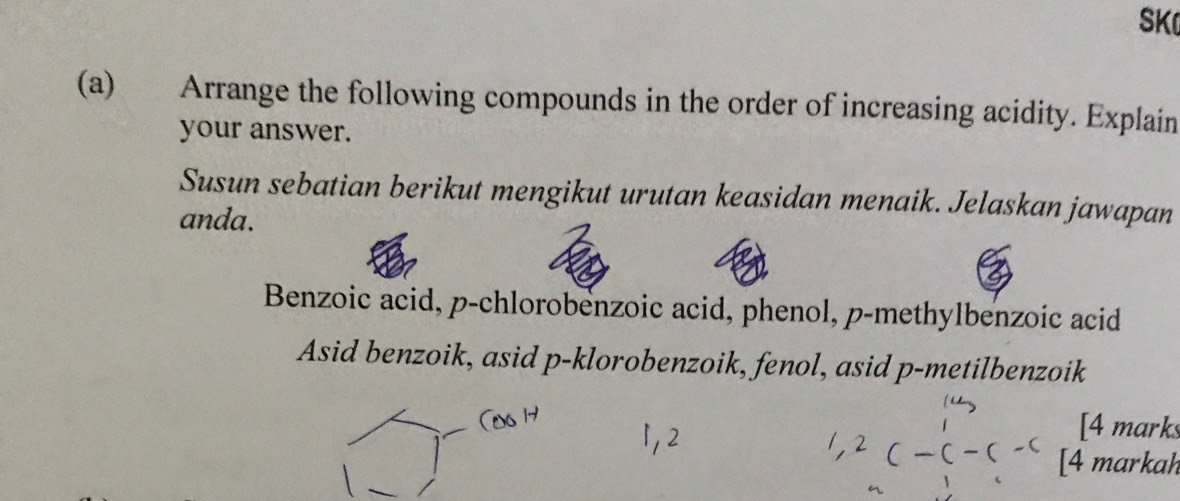 SK
(a) Arrange the following compounds in the order of increasing acidity. Explain
your answer.
Susun sebatian berikut mengikut urutan keasidan menaik. Jelaskan jawapan
anda.
Benzoic acid, p-chlorobenzoic acid, phenol, p-methylbenzoic acid
Asid benzoik, asid p-klorobenzoik, fenol, asid p-metilbenzoik
COOH
1,2
1,2 C-C-C-C
[4 marks
[4 markah